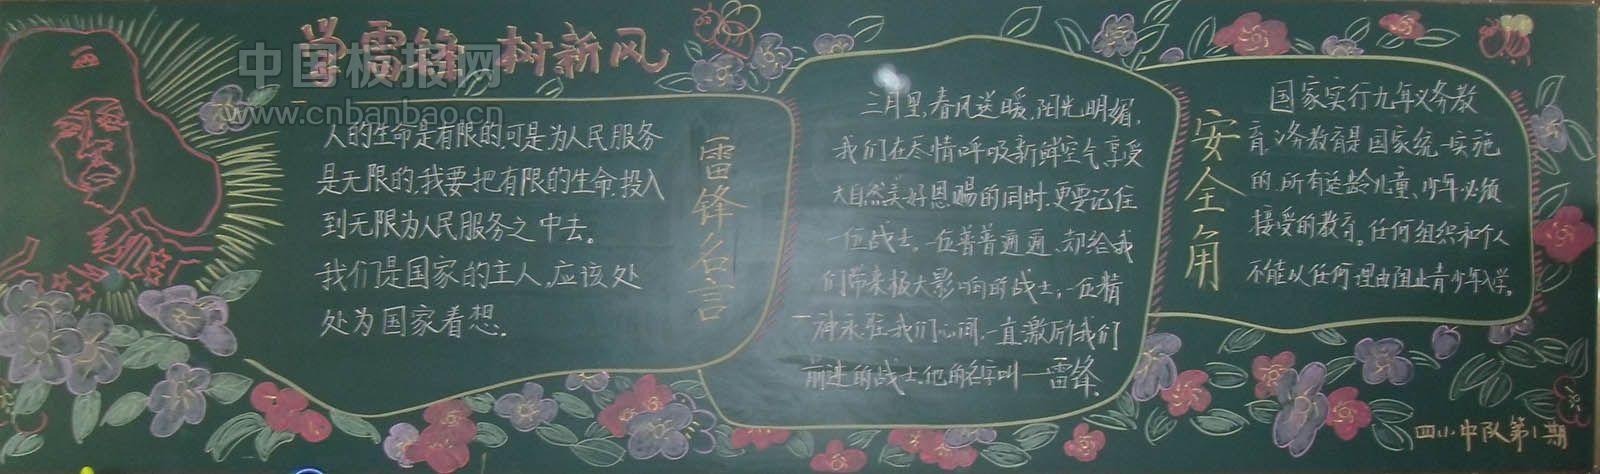 学雷锋 树新风
中国板报网
www.cnbanbao.cn
人的生命是有限的,可是为人民服务
是无限的,我要把有限的生命,投入
到无限为人民服务之中去。
我们是国家的主人,应该处
处为国家着想.
雷锋名言
三月里,春风送暖,阳光明媚,
我们在尽情呼吸新鲜空气,享受
大自然美好恩赐的同时,更要记住
一位战士。一位普普通通、却给我
们带来极大影响的战士,一位精
神永驻我们心间,一直激励我们
前进的战士。他的名字叫一雷锋.
安全角
国家实行九年义务教
育,义务教育是国家统一实施
的,所有适龄儿童、少年必须
接受的教育。任何组织和个人
不能以任何理由阻止青少年入学。
四小中队第1期